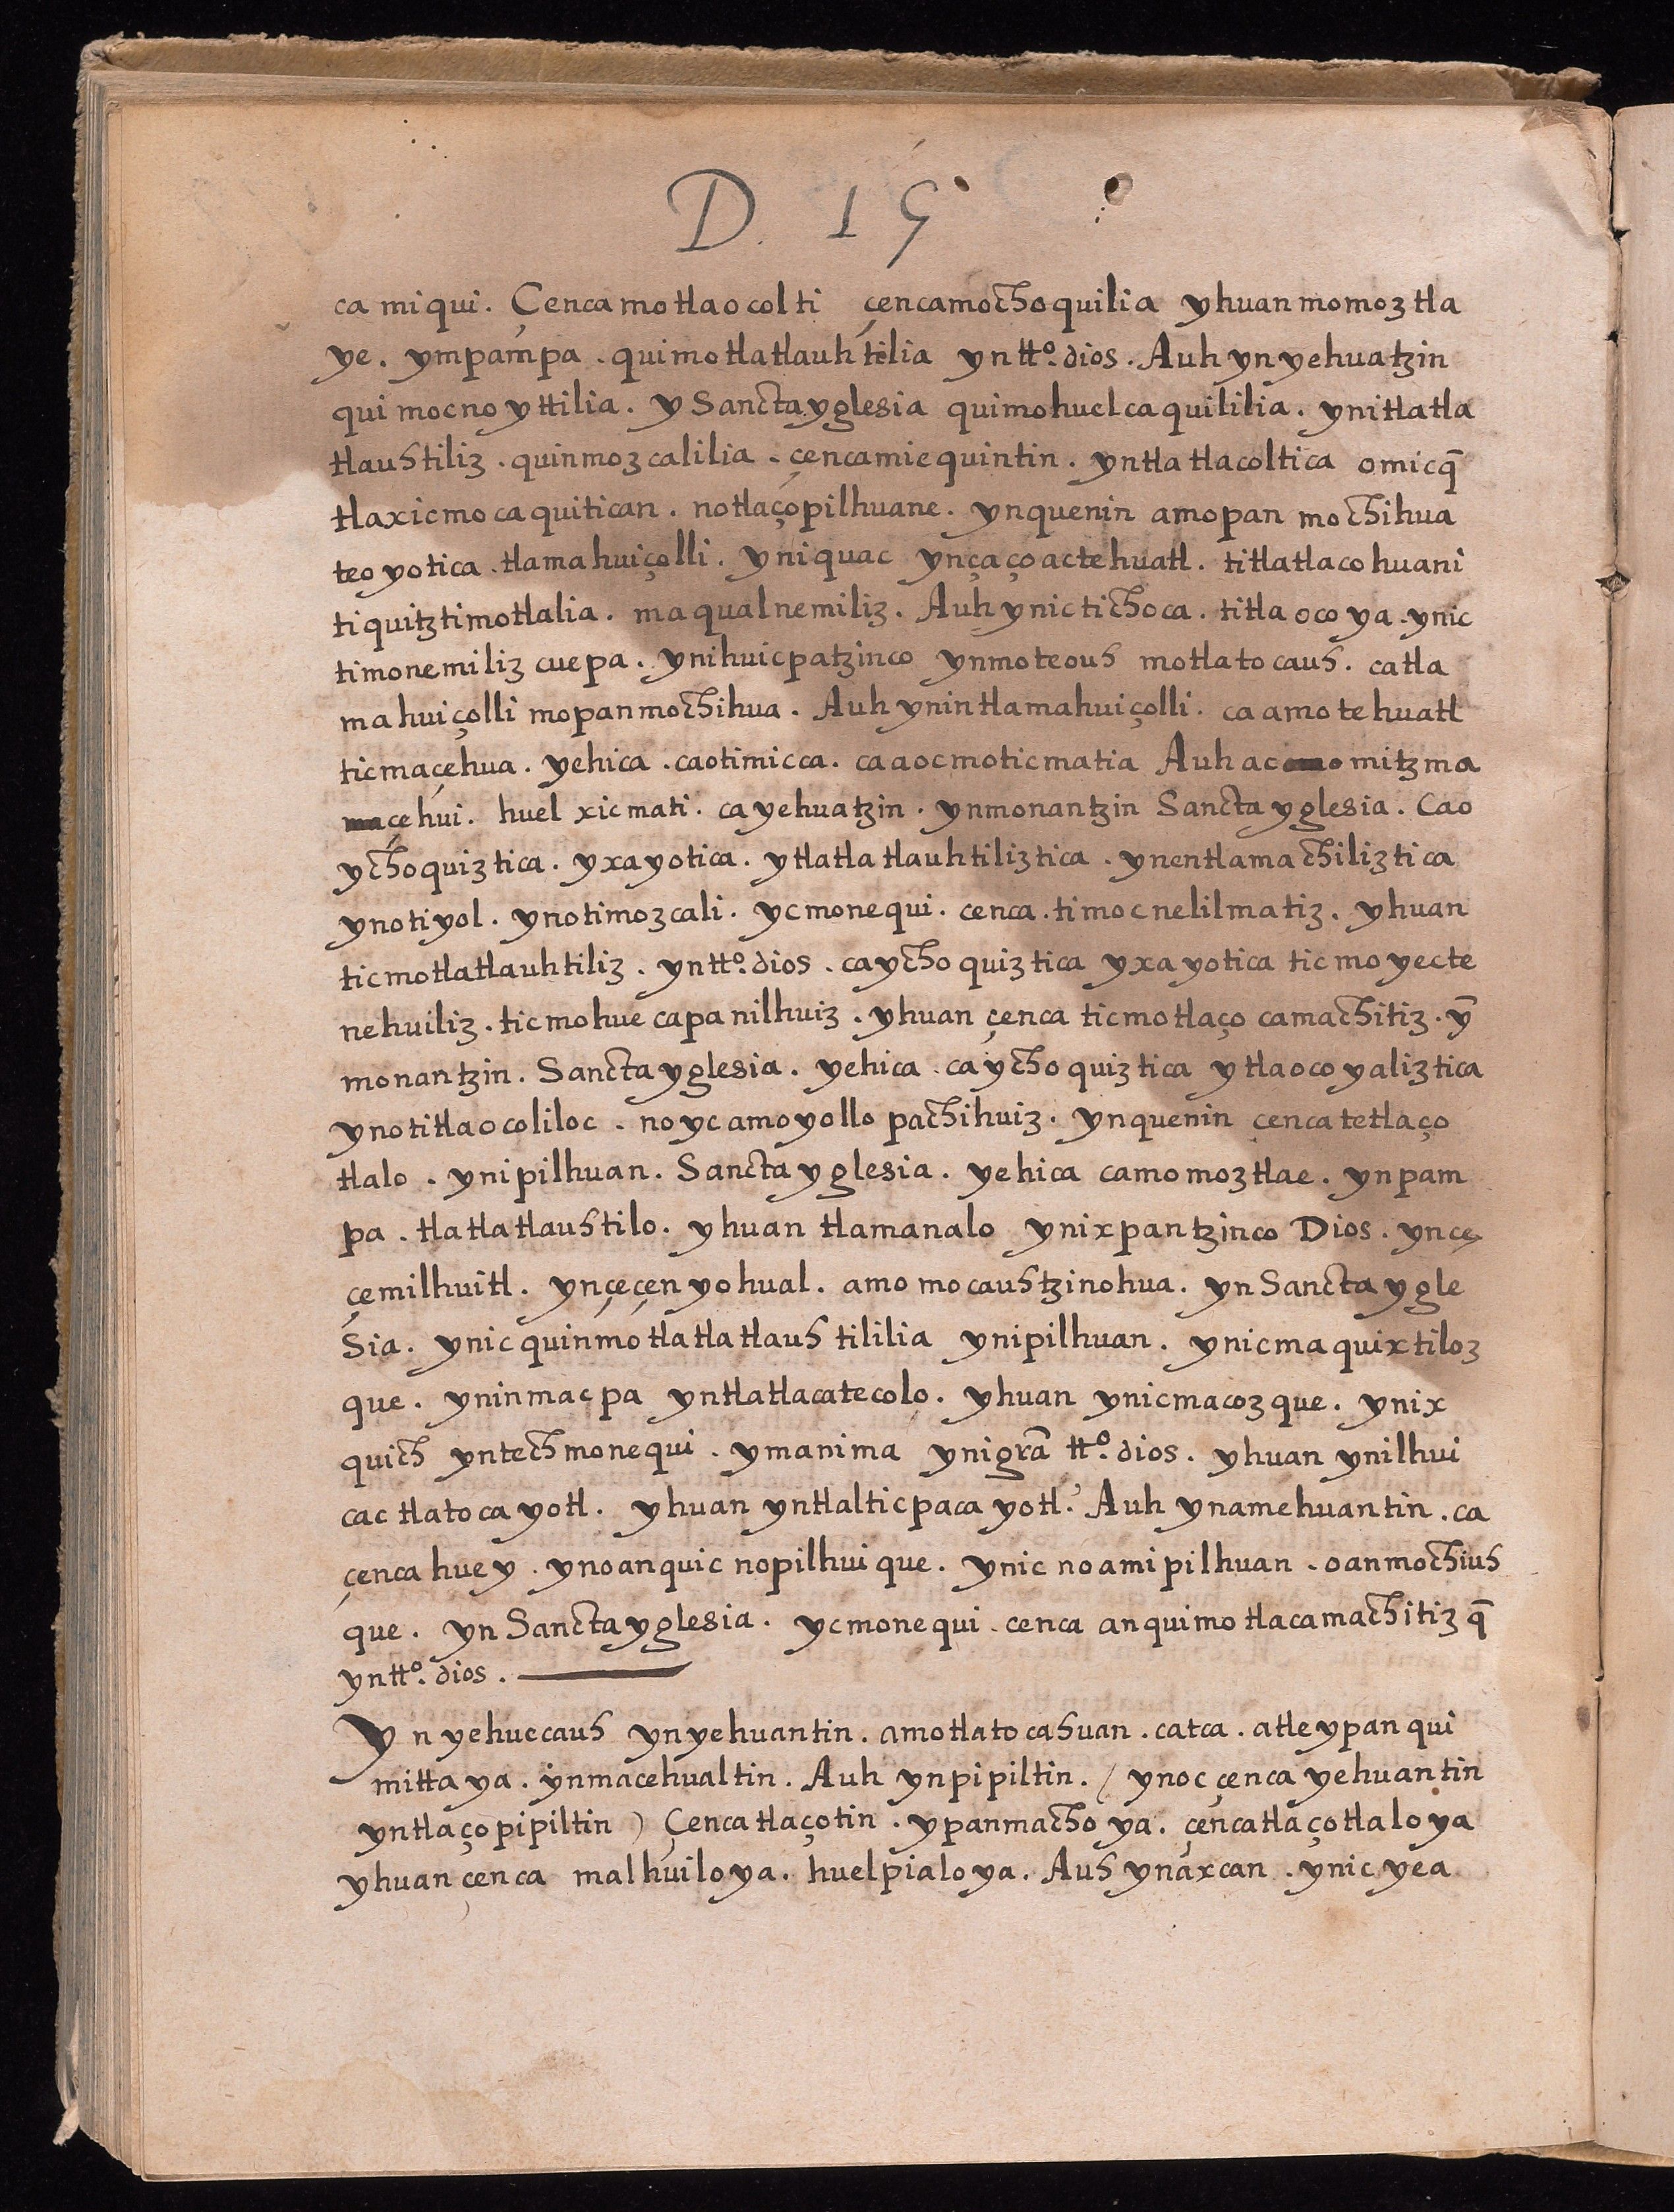 D. 15
ca miqui. Çenca motlaocolti çencamochoquilia yhuan momoztla
ye. ympampa. quimotlatlauhtilia yn tt.º dios. Auh yn yehuatzin
quimocnoyttilia. y Sancta yglesia quimohuelcaquililia. yn itlatla
tlauhtiliz. quinmozcalilia. çenca miequintin. yn tlatlacoltica omicq̄
tlaxicmocaquitican. notlaçopilhuane. yn quenin amopan mochihua
teoyotica. tlamahuiçolli. yniquac ynçaço ac tehuatl. titlatlacohuani
tiquitztimotlalia. maqualnemiliz. Auh ynic tichoca. titlaocoya. ynic
timonemilizcuepa. ynihuicpatzinco ynmoteouh motlatocauh. catla
mahuiçolli mopanmochihua. Auh ynin tlamahuiçolli. ca amo tehuatl
ticmaçehua. yehica. caotimicca. ca aocmo ticmatia Auh ac mitzma
çehui. huel xicmati. ca yehuatzin. ynmonantzin Sancta yglesia. Cao
ychoquiztica. yxayotica. ytlatlatlauhtiliztica. ynentlamachiliztica
ynotiyol. ynotimozcali. ycmonequi. cenca. timocnelilmatiz. yhuan
ticmotlatlauhtiliz. yn tt.º dios. ca ychoquiztica yxayotica ticmoyecte
nehuiliz. ticmohuecapanilhuiz. yhuan çenca ticmotlaçocamachitiz. ȳ
monantzin. Sancta yglesia. yehica. ca ychoquiztica ytlaocoyaliztica
ynotitlaocoliloc. no yc amoyollo pachihuiz. ynquenin çenca tetlaço
tlalo. ynipilhuan. Sancta yglesia. yehica camomoztlae. ynpam
pa. tlatlatlauhtilo. yhuan tlamanalo ynixpantzinco Dios. ynçe
çemilhuitl. ynçeçenyohual. amo mocauhtzinohua. yn Sancta ygle
Sia. ynic quinmotlatlatlauhtililia ynipilhuan. ynicmaquixtiloz
que. yninmacpa yntlatlacatecolo. yhuan ynicmacozque. ynix
quich yntechmonequi. ymanima ynigrã tt.º dios. yhuan ynilhui
cac tlatocayotl. yhuan yntlalticpacayotl. Auh ynamehuantin. ca
çenca huey. ynoanquicnopilhuique. ynic noamipilhuan. oanmochiuh
que. yn Sancta yglesia. ycmonequi. cenca anquimotlacamachitizq̄
yn tt.º dios.
Yn yehuecauh ynyehuantin. amotlatocahuan. catca. atleypanqui
mittaya. ynmacehualtin. Auh ynpipiltin. ( ynoc çenca yehuantin
yntlaçopipiltin ) Çenca tlaçotin. ypanmachoya. çencatlaçotlaloya
yhuan çenca malhuiloya. huelpialoya. Auh ynaxcan. ynic yea